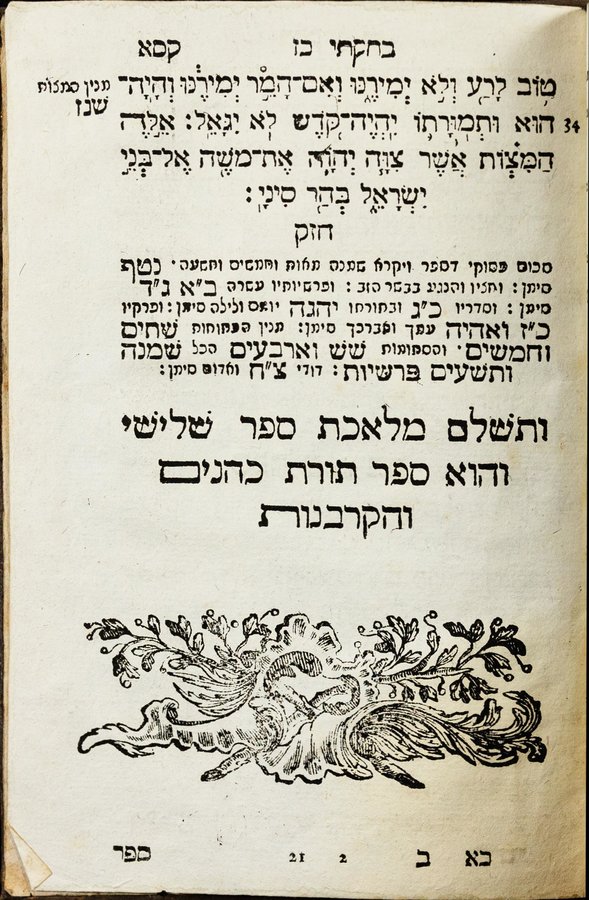 בחקתי כז קסא
ט֥וֹב לָרַ֖ע וְלֹ֣א יְמִירֶ֑נּוּ וְאִם־הָמֵ֣ר יְמִירֶ֔נּוּ וְהָֽיָה־
מנין המצות
שנז
ה֧וּא וּתְמוּרָת֛וֹ יִֽהְיֶה־קֹ֖דֶשׁ לֹ֥א יִגָּאֵֽל׃ אֵ֣לֶּה 34
הַמִּצְוֺ֗ת אֲשֶׁ֨ר צִוָּ֧ה יְהוָ֛ה אֶת־מֹשֶׁ֖ה אֶל־בְּנֵ֣י
יִשְׂרָאֵ֑ל בְּהַ֖ר סִינָֽי׃
חזק
סכום פסוקי דספר ויקרא שמנה מאות וחמשים ותשעה. נטף
סימן: וחציו והנוגע בבשר הזב: ופרשיותיו עשרה ב״א ג״ד
סימן: וסדריו כ״ג ובתורתו יהגה יומם ולילה סימן: ופרקיו
כ״ז ואהיה עמך ואברכך סימן: מנין הפתוחות שתים
וחמשים. והסתומות שש וארבעים הכל שמנה
ותשעים פרשיות: דודי צ״ח ואדום סימן:
ותשלם מלאכת ספר שלישי
והוא ספר תורת כהנים
והקרבנות
בא ב 2 21 ספר